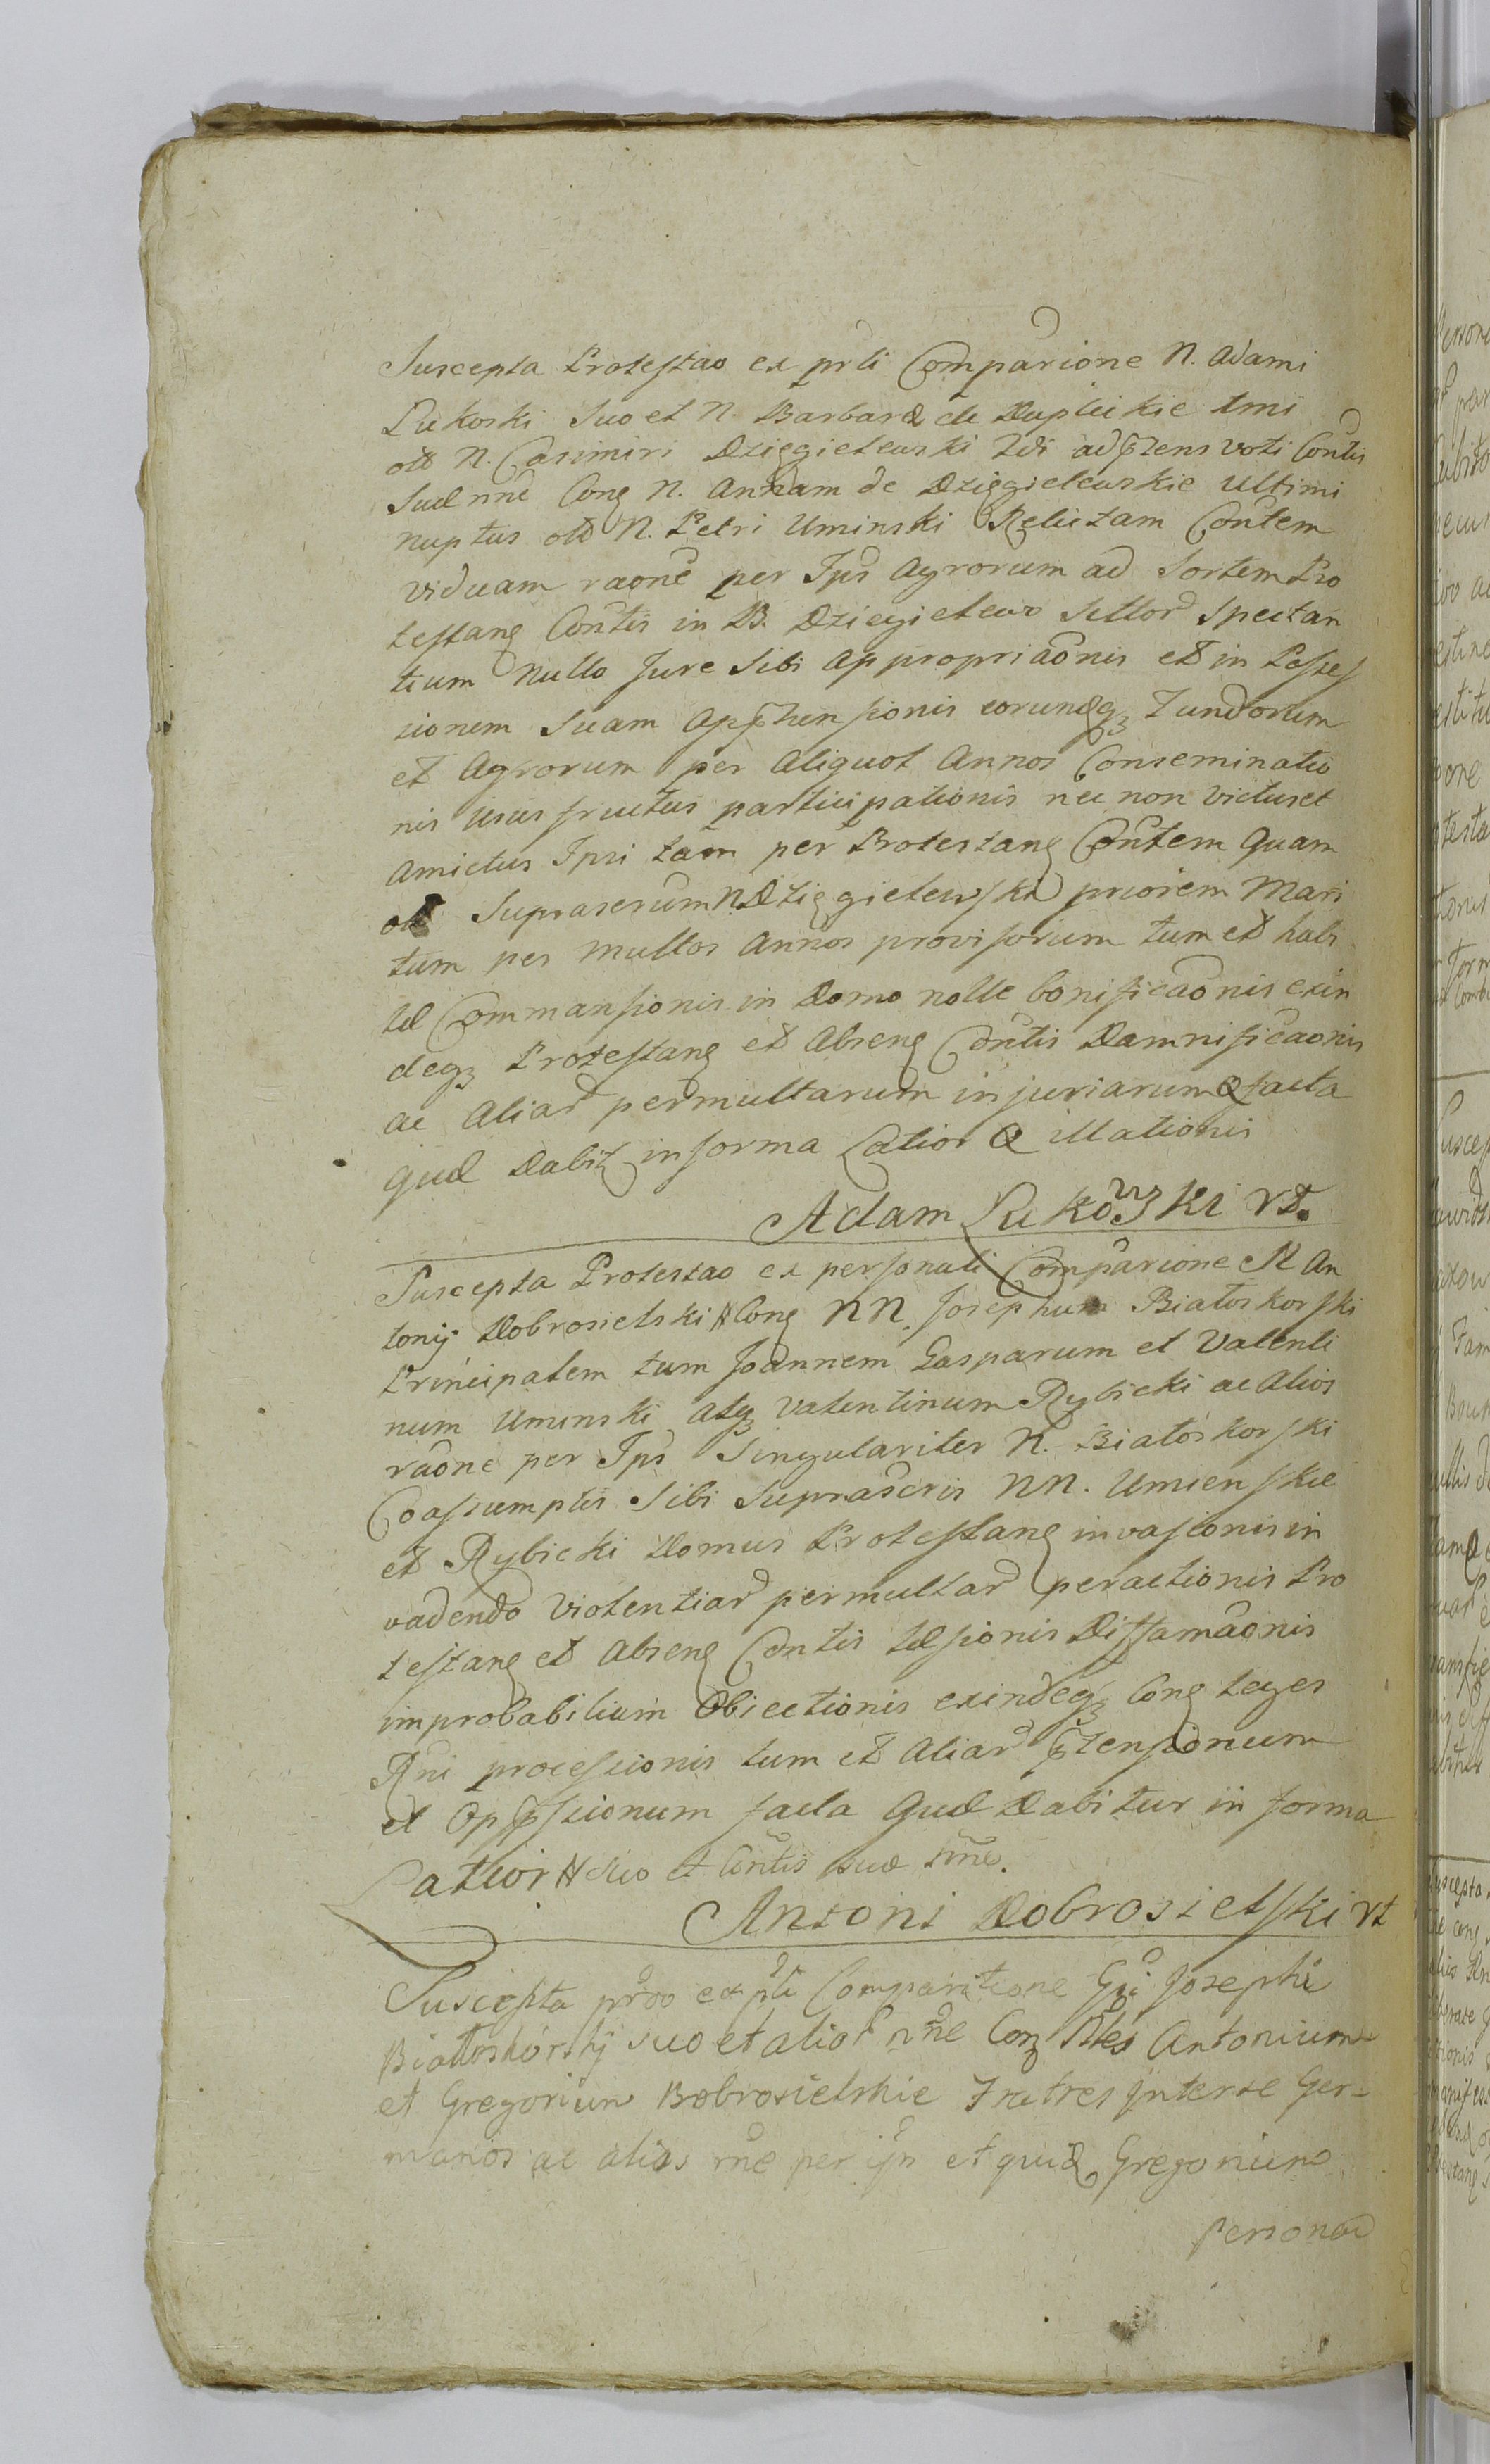 Suscepta Protestao ex prli Comparione N. Adami
Lukoski suo et N. Barbaræ de Duplickie 1mi
olo N. Casimiri Dzięgielewski 2di adprens voti Contis
suæ nne Conq N. Annam de Dzięgielewskie ultimi
nuptus olo N. Petri Uminski Relictam Contem
viduam raone per Ips Agrorum ad Sortem Pro
testanq Contis in B. Dziegielewo sitor Spectan
tium nullo Jure sibi appropriaonis et in Posses
sionem suam apprhensionis eorundqz Fundorum
et Agrorum per aliquot Annos Conseminatio
nis usus fructus participationis nec non victus et
amictus Ipsi tam per Protestanq Contem quam
olo suprascrum N. Dzięgielewski priorem Mari
tum per multos annos provisorum tum et habi
tæ Commansionis in Domo nolle bonificaonis exin
deqz Protestanq et Absenq Contis Damnificaonis
ac aliar permultarum injuriarum facta
quæ Dabit in forma Latior illationis
Adam Lukowski rt.
Suscepta Protestao ex personali Comparione N An
tonij Dobrosielski # Conq NN. Josephum Białoskorski
Principalem tum Joannem Gasparum et Valenti
num Uminski atqz Valentinum Rybicki ac Alios
raone per Ips Singulariter N. Białoskorski
Coassumptis sibi suprascris NN. Umienskie
et Rybicki Domus Protestanq invasionis in
vadendo violentiar permultar peractionis Pro
testanq et Absenq Contis læsionis Diffamaonis
improbabilium Obiectionis exindeqz Conq Leges
Rni processionis tum et Aliar prtensionum
et Opprssionum facta quæ Dabitur in forma
Latior # suo et Contis suæ nne.
Antoni Dobrosielski rt
Suscepta prao ex pli Comparitione Gsi Josephi
Białłoskórskÿ suo et alior nne Conq Nles Antonium
et Gregorium Dobrosielskie Fratres Interse Ger-
manos ac alios rne per ijs et quid Gregorium
personal